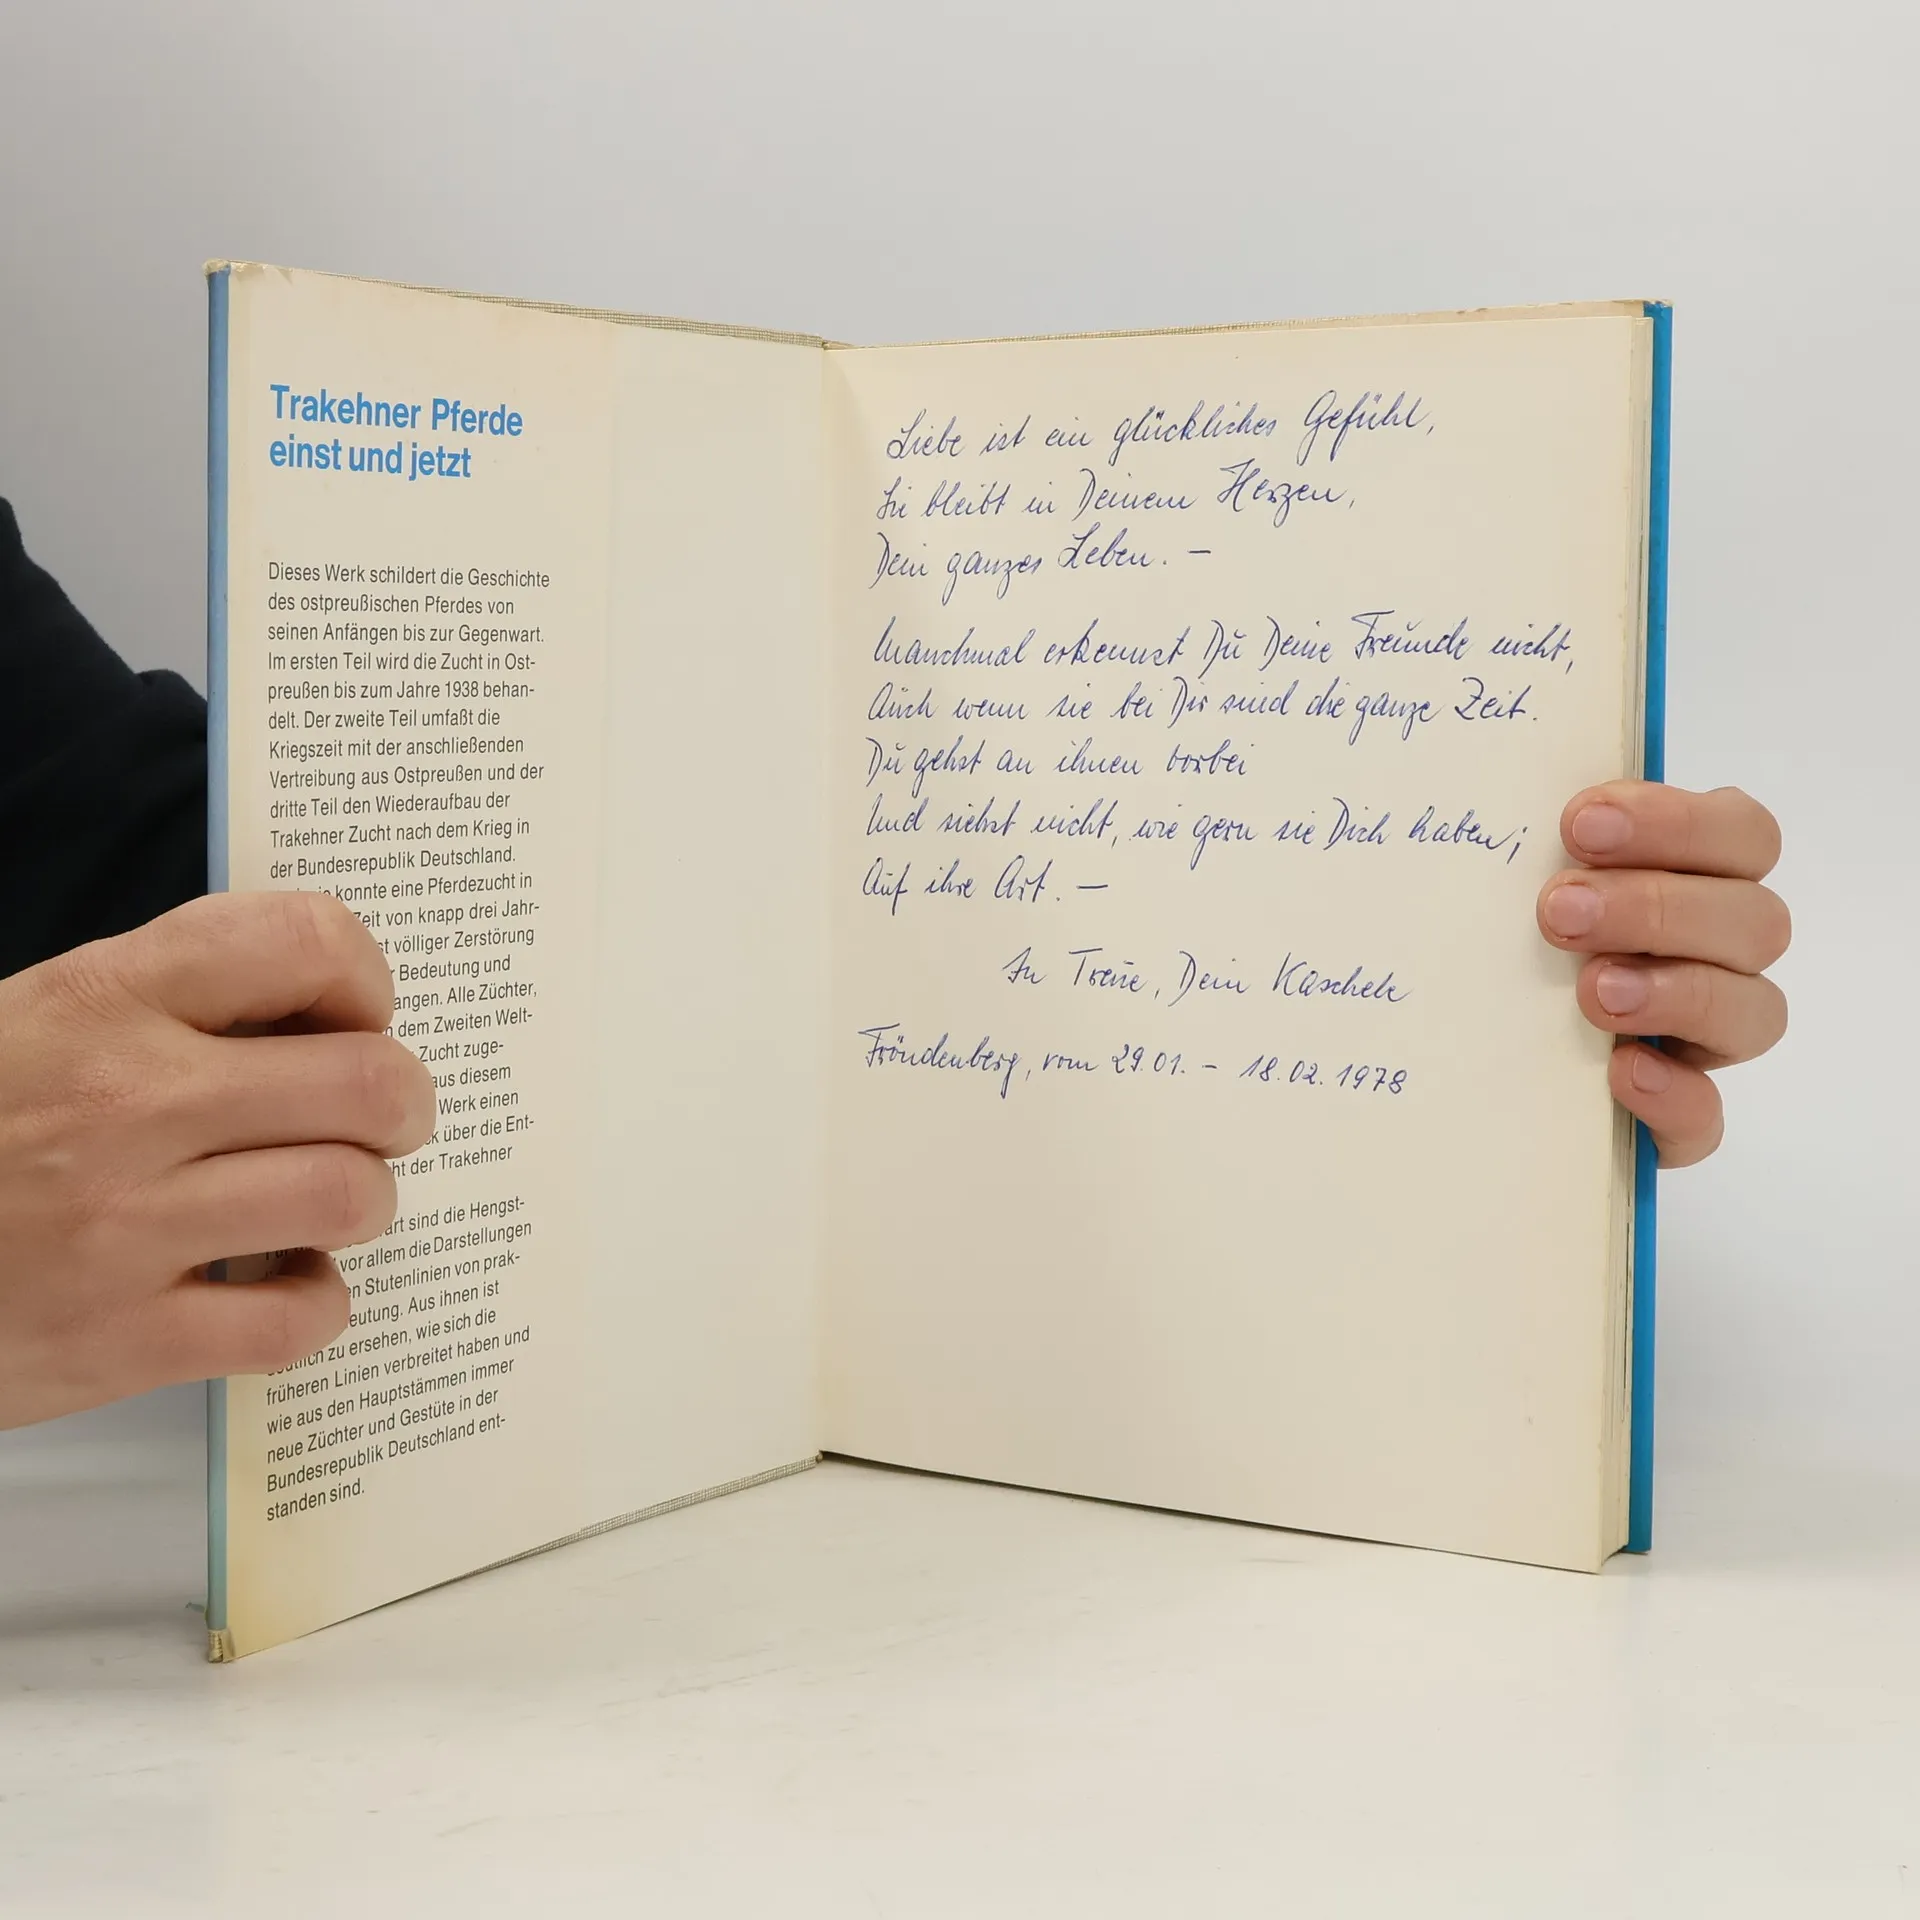 Trakehner Pferde
einst und jetzt
Dieses Werk schildert die Geschichte
des ostpreußischen Pferdes von
seinen Anfängen bis zur Gegenwart.
Im ersten Teil wird die Zucht in Ost-
preußen bis zum Jahre 1938 behan-
delt. Der zweite Teil umfaßt die
Kriegszeit mit der anschließenden
Vertreibung aus Ostpreußen und der
dritte Teil den Wiederaufbau der
Trakehner Zucht nach dem Krieg in
der Bundesrepublik Deutschland.
konnte eine Pferdezucht in
Zeit von knapp drei Jahr-
völliger Zerstörung
Bedeutung und
Alle Züchter,
dem Zweiten Welt-
Zucht zuge-
aus diesem
Werk einen
über die Ent-
der Trakehner
sind die Hengst-
vor allem die Darstellungen
Stutenlinien von prak-
Aus ihnen ist
zu ersehen, wie sich die
früheren Linien verbreitet haben und
wie aus den Hauptstämmen immer
neue Züchter und Gestüte in der
Bundesrepublik Deutschland ent-
standen sind.
Liebe ist ein glückliches Gefühl,
Sie bleibt in Deinem Herzen,
Dein ganzes Leben. —
Manchmal erkennst Du Deine Freunde nicht,
Auch wenn sie bei Dir sind die ganze Zeit.
Du gehst an ihnen vorbei
Und siehst nicht, wie gern sie Dich haben;
Auf ihre Art. —
In Treue, Dein Kaschele
Fröndenberg, vom 29.01. - 18.02.1978